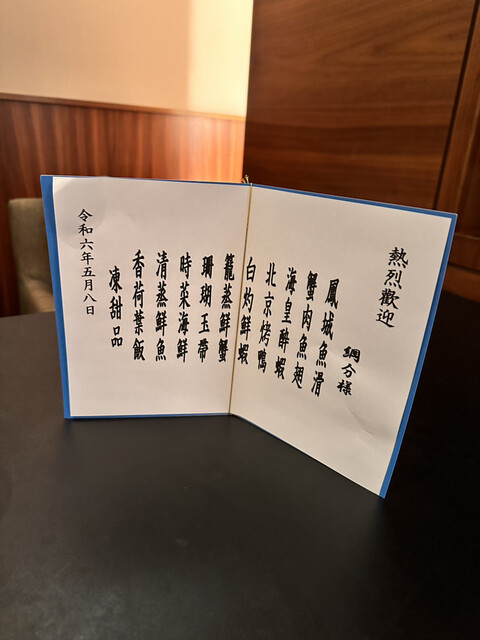 熱烈歡迎
綱分様
鳳城魚滑
蟹肉魚翅
海皇醉蝦
北京烤鴨
白灼鮮蝦
籠蒸鮮蟹
珊瑚玉帶
時菜海鮮
清蒸鮮魚
香荷葉飯
凍甜品
令和六年五月八日